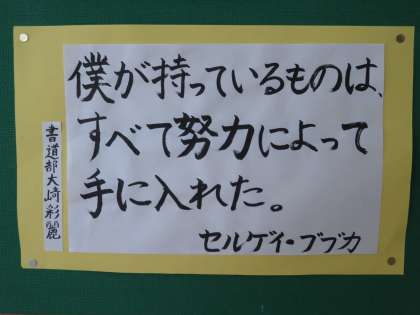 僕が持っているものは、
すべて努力によって
手に入れた。
セルゲイ・ブブカ
書道部大崎彩麗